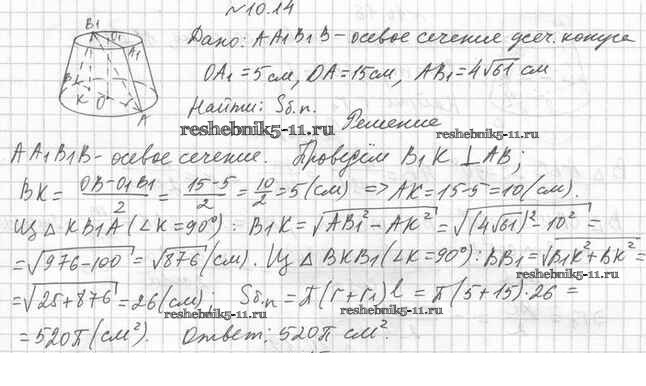 №10.14
B₁ O₁ A₁
Дано: AA₁B₁B – осевое сечение усеч. конуса
OA₁ = 5 см, OA = 15 см, AB₁ = 4√61 см
B K O A
Найти: Sб.п.
reshebnik5-11.ru
Решение
AA₁B₁B – осевое сечение. Проведём B₁K ⊥ AB;
BK = (OB-O₁B₁)/2 = (15-5)/2 = 10/2 = 5 (см) => AK = 15-5 = 10 (см).
Из △ KB₁A (∠K=90°): B₁K = √(AB₁² - AK²) = √((4√61)² - 10²) =
= √(976-100) = √876 (см). Из △ BKB₁ (∠K=90°): BB₁ = √(B₁K² + BK²) =
reshebnik5-11.ru
= √(25+876) = 26 (см); Sб.п. = π(r+r₁)l = π(5+15)·26 =
reshebnik5-11.ru
= 520π (см²). Ответ: 520π см².